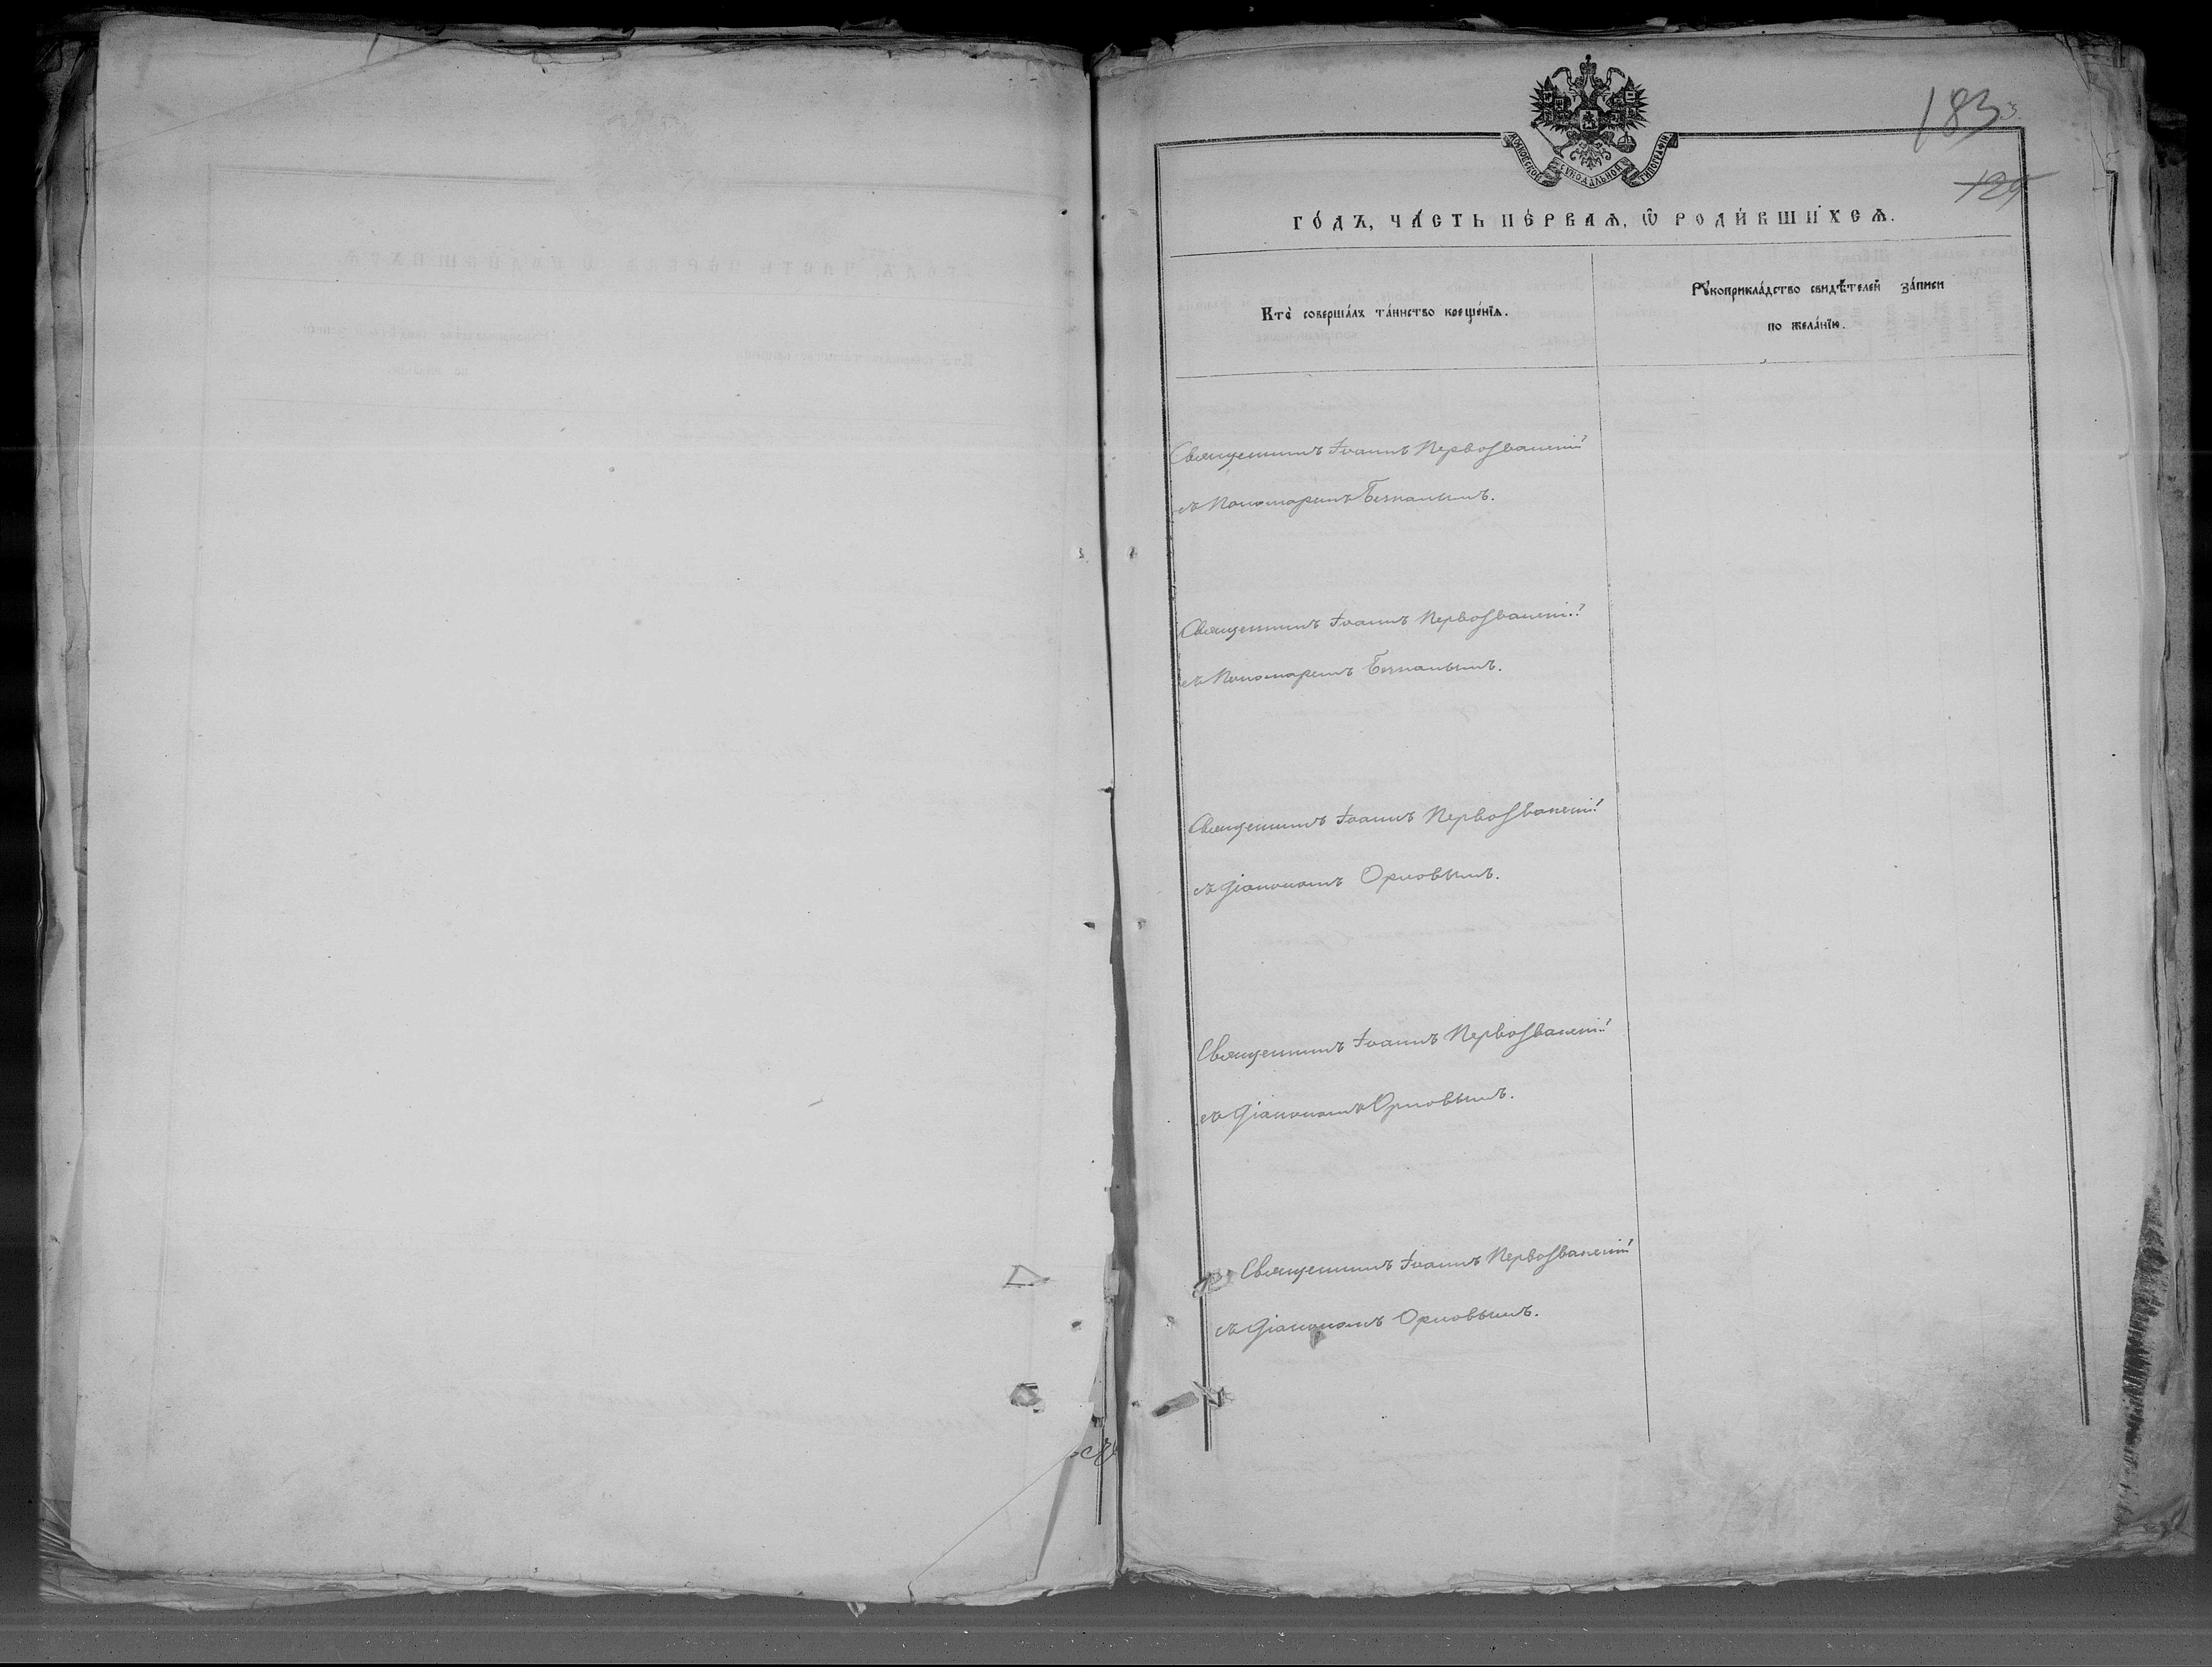 183
3.
129
МОСКОВСКОЙ СѴНОДАЛЬНОЙ ТИПОГРАФІИ
ГО́ДЪ, ЧА́СТЬ ПЕ́РВАѦ, Ѽ РОДИ́ВШИХСѦ.
Кто̀ соверша́лъ та́инство креще́нїѧ.
Рꙋкоприкла́дство свидѣ́телей за́писи
по жела́нїю.
Священникъ Іоаннъ Первозванскій
съ Пономаремъ
Священникъ Іоаннъ Первозванскій
съ Пономаремъ
Священникъ Іоаннъ Первозванскій
съ Діакономъ Орловымъ.
Священникъ Іоаннъ Первозванскій
съ Діакономъ Орловымъ.
Священникъ Іоаннъ Первозванскій
съ Діакономъ Орловымъ.